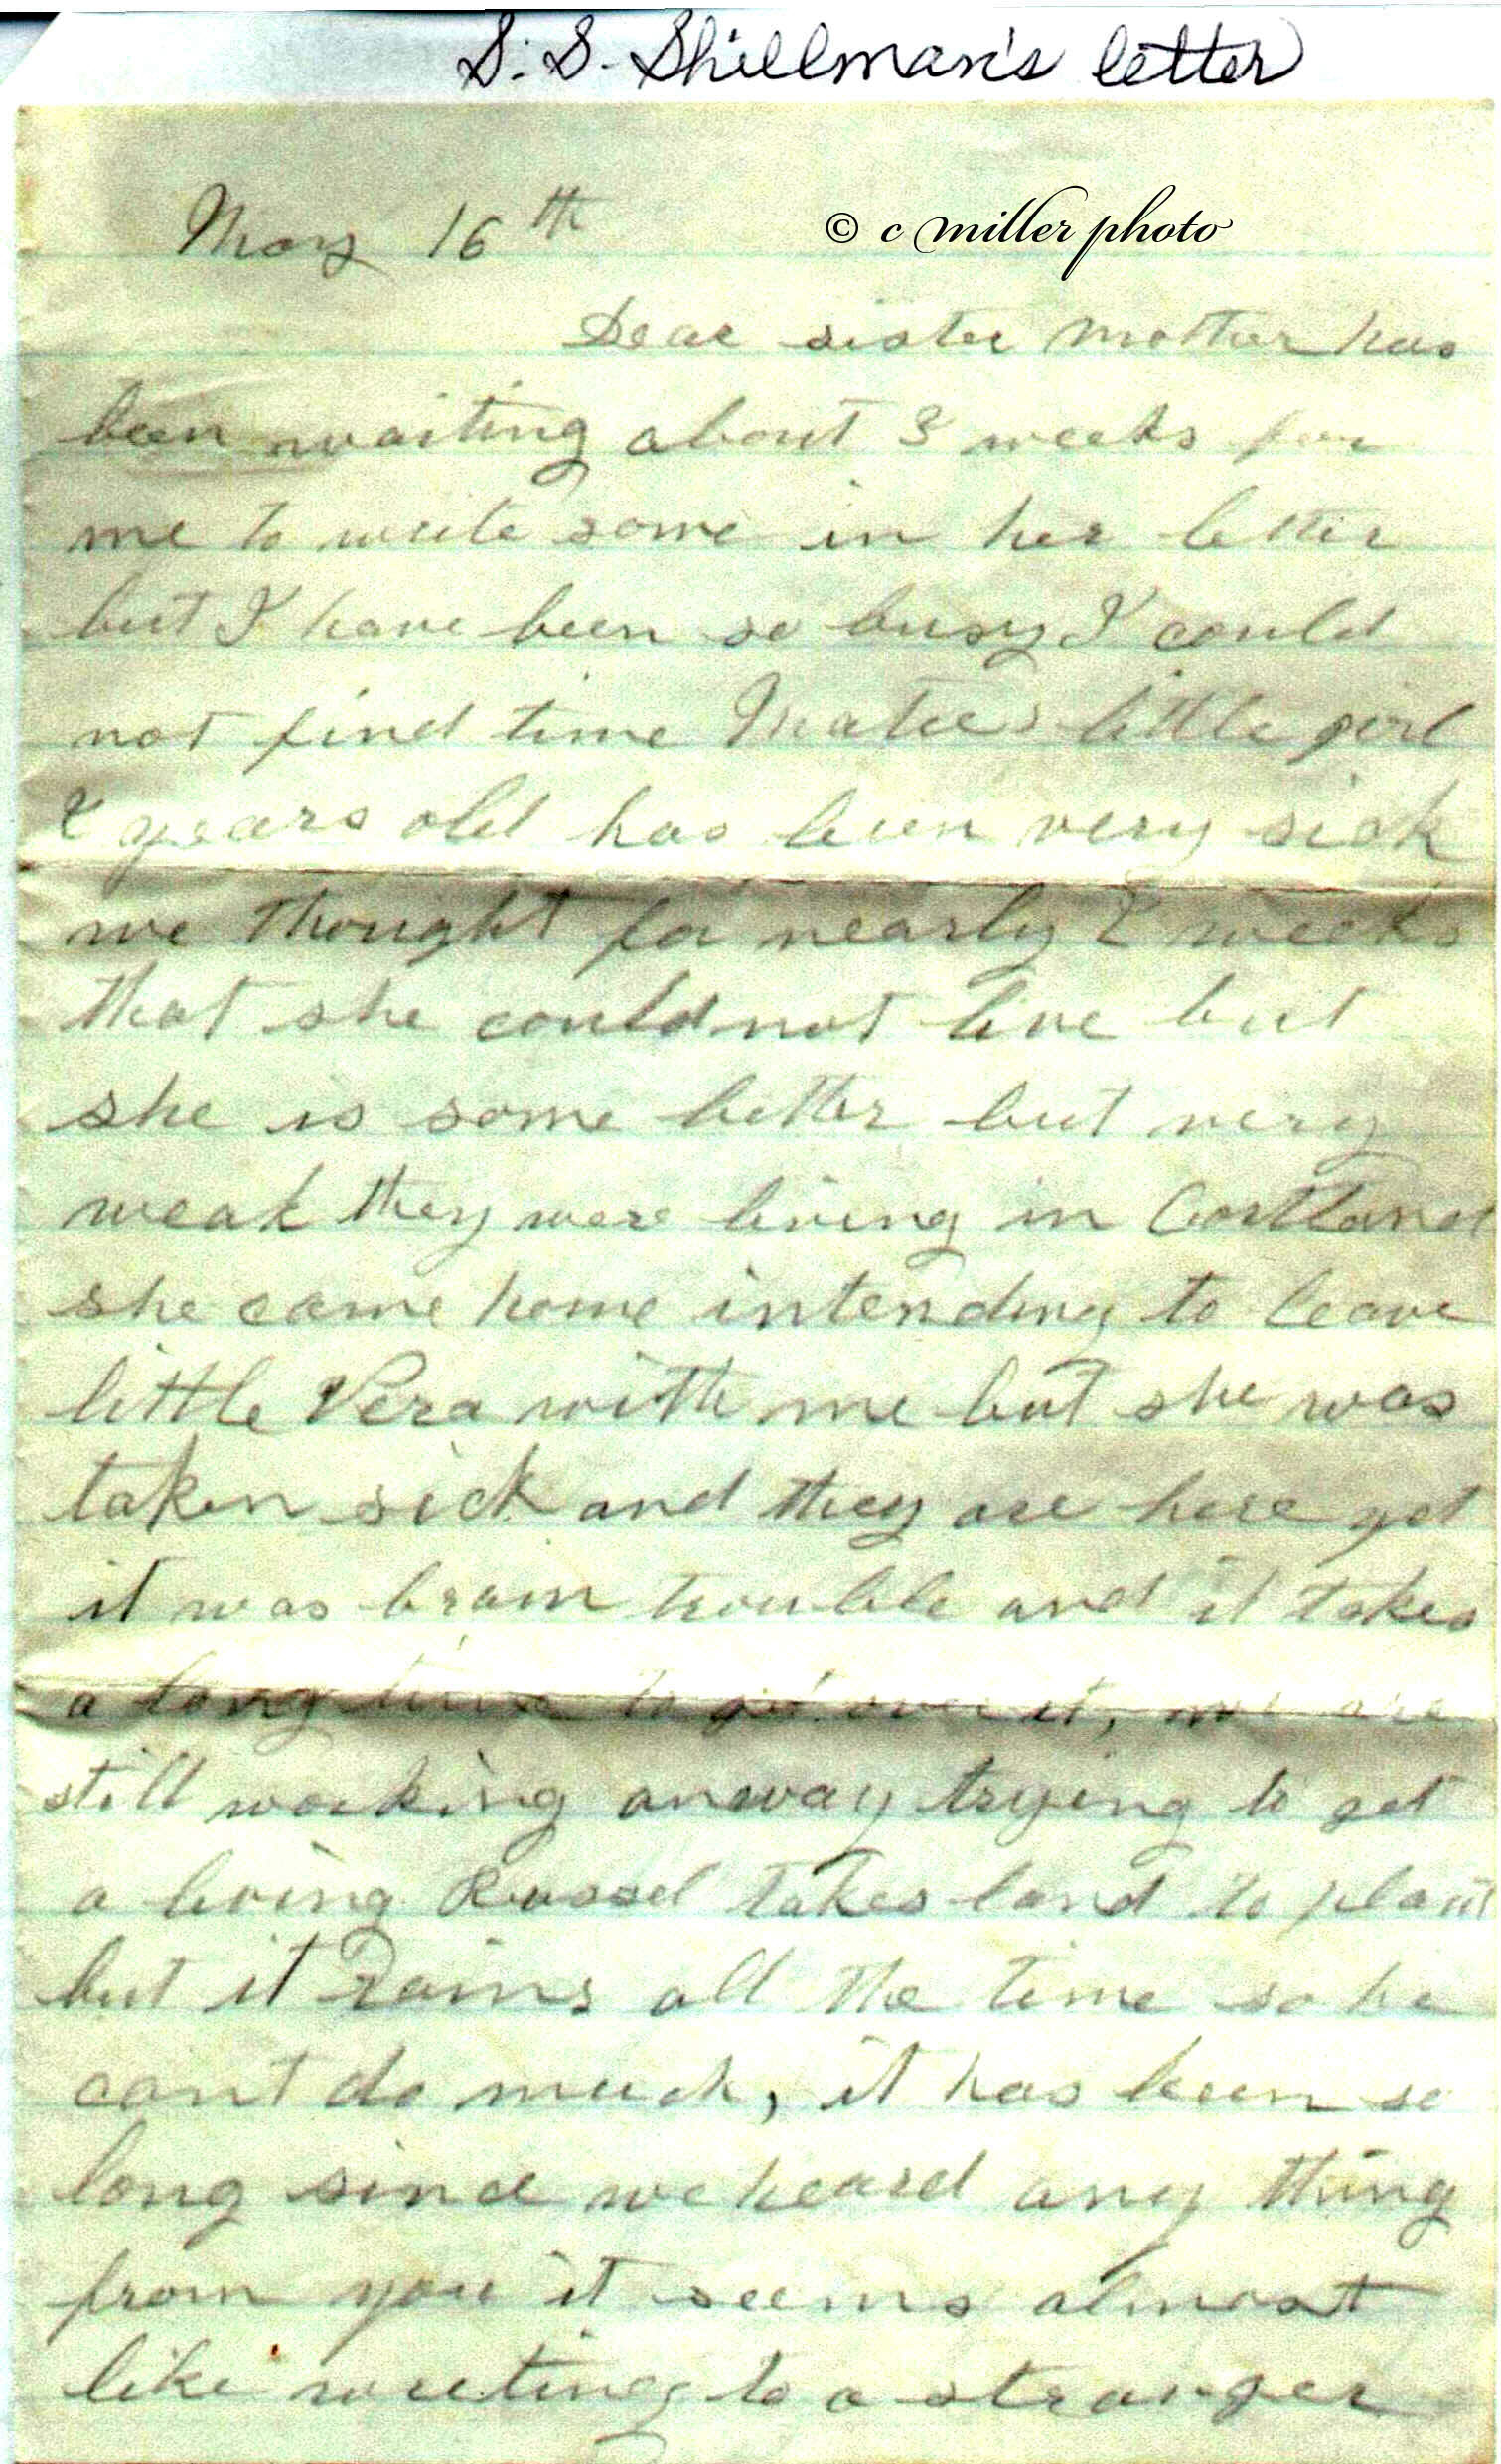 S. S. Shillman's letter
May 16th
© c miller photo
Dear sister Mother has
been waiting about 3 weeks for
me to write some in her letter
but I have been so busy I could
not find time little girl
2 years old has been very sick
we thought for nearly 2 weeks
that she could not live but
she is some better but very
weak they were living in Cortland
she came home intending to leave
little Vera with me but she was
taken sick and they are here yet
it was brain trouble and it takes
a long time to get over it, we are
still working anway trying to get
a living Russel takes land to plant
but it Rains all the time so he
cant do much, it has been so
long since we heard any thing
from you it seems almost
like writing to a stranger